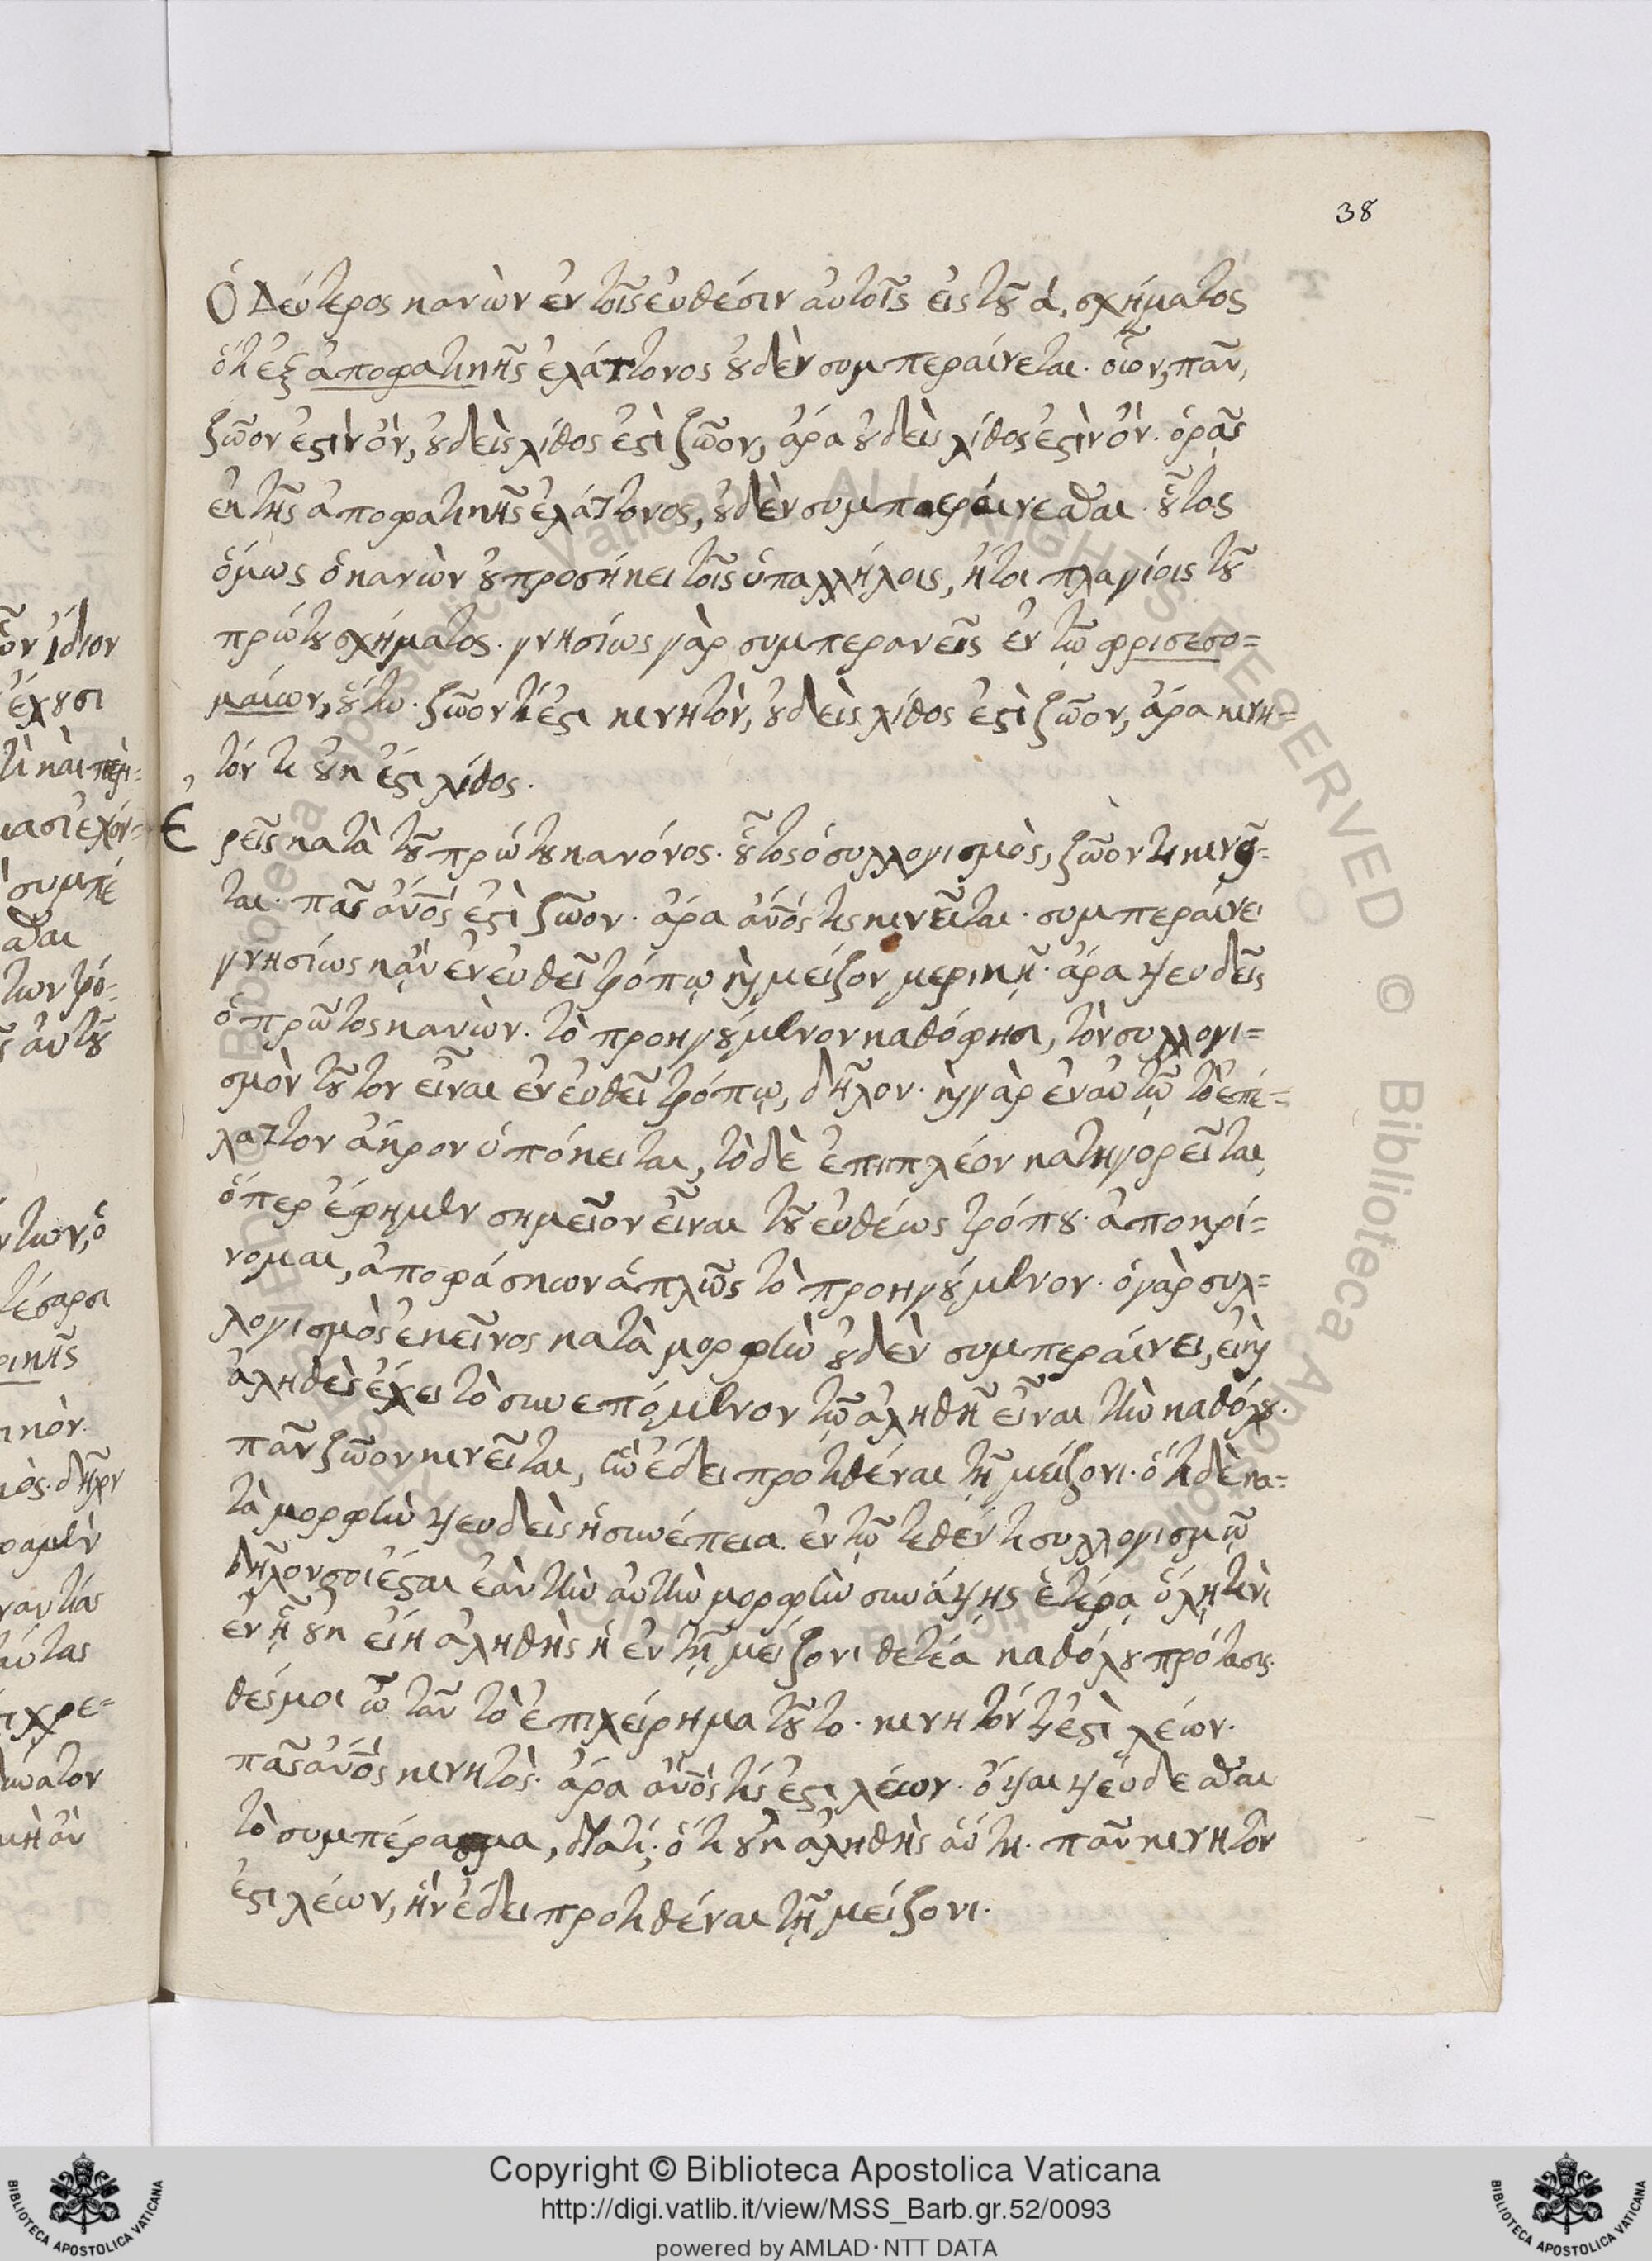 38
Ὁ δεύτερος κανὼν ἐν τοῖς εὐθέσιν αὐτοῖς εἰς τοῦ ά. σχήματος
ὅτι ἐξ ἀποφατικῆς ἐλάττονος οὐδὲν συμπεραίνεται. οἷον, πᾶν
ζῶον ἐστὶν ὂν, οὐδεὶς λίθος ἐστὶ ζῶον, ἄρα οὐδεὶς λίθος ἐστὶν ὄν. ὁρᾷς
ἐκ τῆς ἀποφατικῆς ἐλάττονος, οὐδὲν συμπεραίνεσθαι. οὗτος
ὅμως ὁ κανὼν οὐ προσήκει τοῖς ὑπαλλήλοις, ἤτοι πλαγίοις τοῦ
πρώτου σχήματος. γνησίως γὰρ συμπερανεῖς ἐν τῷ φρισεσο=
μαίων, οὕτω. ζῶον τὶ ἐστι κινητὸν, οὐδεὶς λίθος ἐστὶ ζῶον, ἄρα κινη=
τόν τι οὐκ ἔστι λίθος.
Ἐρεῖς κατὰ τοῦ πρώτου κανόνος. οὗτος ὁ συλλογισμὸς, ζῶον τι κινεῖ=
ται. πᾶς ἄνος ἐστὶ ζῶον. ἄρα ἄνος τις κινεῖται. συμπεραίνει
γνησίως κᾂν ἐν εὐθεῖ τρόπῳ ᾖ μείζον μερικῇ. ἄρα ψευδεῖς
ὁ πρῶτος κανών. τὸ προηγούμενον καθό φησι, τὸν συλλογι=
σμὸν τοῦτον εἶναι ἐν εὐθεῖ τρόπῳ, δῆλον. καὶ γὰρ ἐν αὐτῷ τὸ ἐπέ=
λαττον ἄκρον ὑπόκειται, τὸ δὲ ἐπιπλέον κατηγορεῖται,
ὅπερ ἔφημεν σημεῖον εἶναι τοῦ εὐθέως τρόπου. ἀποκρί=
νομαι, ἀποφάσκων ἁπλῶς τὸ προηγούμενον. ὁ γὰρ συλ=
λογισμὸς ἐκεῖνος κατὰ μορφὴν οὐδὲν συμπεραίνει, εἰ καὶ
ἀληθὲς ἔχει τὸ συνεπόμενον τῷ ἀληθῆ εἶναι τὴν καθόλου.
πᾶν ζῶον κινεῖται, ἣν ἔδει προτιθέναι τῇ μείζονι. ὅτι δὲ κα=
τὰ μορφὴν ψευδεὶς ἡ συνέπεια ἐν τῷ τεθέντι συλλογισμῷ
δῆλον σοι ἔσται ἐὰν τὴν αὐτὴν μορφὴν συνάψῃς ἑτέρᾳ ὕλῃ τινὶ
ἐν ᾗ οὐκ εἴη ἀληθὴς ἡ ἐν τῇ μείζονι θετέα καθόλου πρότασις.
θές μοι ὦ τᾶν τὸ ἐπιχείρημα τοῦτο. κινητόν τι ἐστὶ λέων.
πᾶς ἄνος κινητὸς. ἄρα ἄνος τίς ἐστι λέων. ὄψαι ψεύδεσθαι
τὸ συμπέρασμα, διατί; ὅτι οὐκ ἀληθὴς αὕτη. πᾶν κινητὸν
ἐστι λέων, ἣν ἔδει προτιθέναι τῇ μείζονι.
Copyright © Biblioteca Apostolica Vaticana
http://digi.vatlib.it/view/MSS_Barb.gr.52/0093
powered by AMLAD·NTT DATA